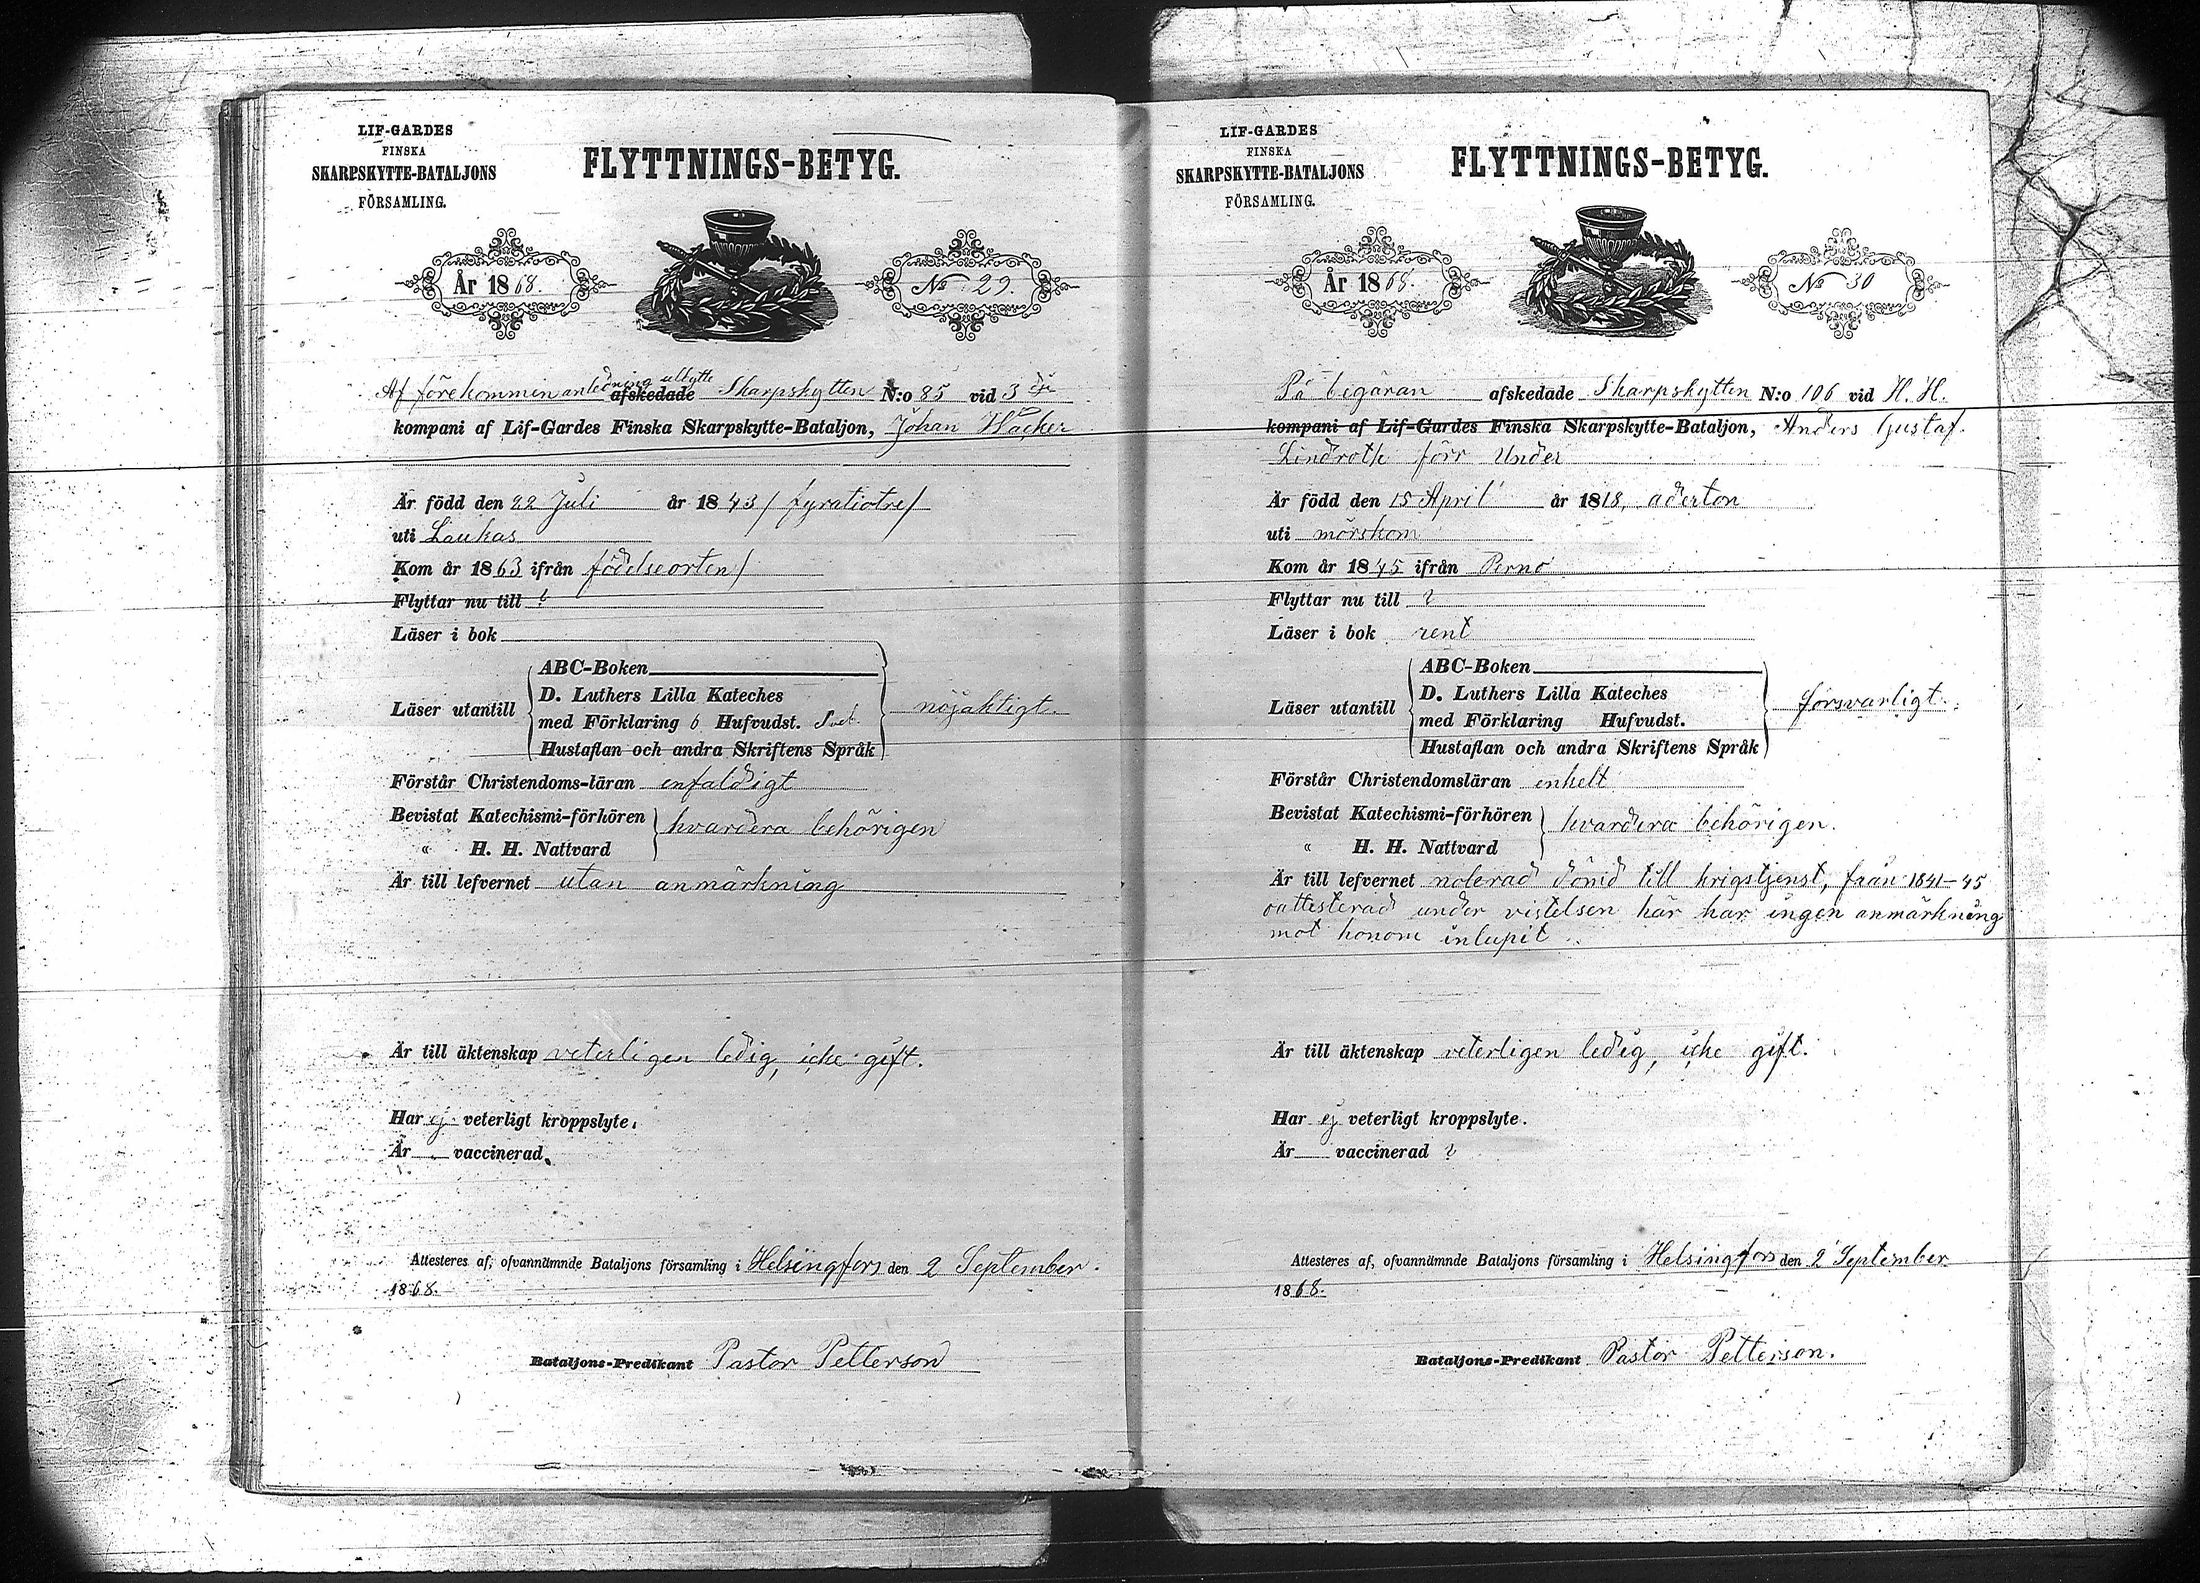 LIF-GARDES
FINSKA
SKARPSKYTTE-BATALJONS
FÖRSAMLING.
FLYTTNINGS-BETYG.
År 1868.
No 29.
Af förekommen anledning utbytte afskedade Skarpskytten N:o 85 vid 3 dje
kompani af Lif-Gardes Finska Skarpskytte-Bataljon, Johan Häcker
Är född den 22 Juli år 1843 / fyratiotre /
uti Laukas
Kom år 1863 ifrån födelseorten /
Flyttar nu till ?
Läser i bok
Läser utantill
ABC-Boken
D. Luthers Lilla Kateches
med Förklaring 6 Hufvudst.
Hustaflan och andra Skriftens Språk
nöjaktigt.
Förstår Christendoms-läran enfaldigt
Bevistat Katechismi-förhören
" H. H. Nattvard
hvardera behörigen
Är till lefvernet utan anmärkning
Är till äktenskap veterligen ledig, icke gift.
Har ej veterligt kroppslyte.
Är vaccinerad.
Attesteres af, ofvannämnde Bataljons församling i Helsingfors den 2 September.
1868.
Bataljons-Predikant Pastor Petterson
LIF-GARDES
FINSKA
SKARPSKYTTE-BATALJONS
FÖRSAMLING.
FLYTTNINGS-BETYG.
År 1868.
No 30
På begäran afskedade Skarpskytten N:o 106 vid H. H.
kompani af Lif-Gardes Finska Skarpskytte-Bataljon, Anders Gustaf
Lindroth förr Under
Är född den 15 April år 1818, aderton
uti mörskom
Kom år 1845 ifrån Perno
Flyttar nu till ?
Läser i bok rent
Läser utantill
ABC-Boken
D. Luthers Lilla Kateches
med Förklaring Hufvudst.
Hustaflan och andra Skriftens Språk
försvarligt.
Förstår Christendomsläran enkelt
Bevistat Katechismi-förhören
" H. H. Nattvard
hvardera behörigen.
Är till lefvernet noterad dömd till krigstjenst, från 1841-45
oattesterad under vistelsen här har ingen anmärkning
mot honom inlupit.
Är till äktenskap veterligen ledig, icke gift.
Har ej veterligt kroppslyte.
Är vaccinerad ?
Attesteres af, ofvannämnde Bataljons församling i Helsingfors den 2 September
1868.
Bataljons-Predikant Pastor Petterson.